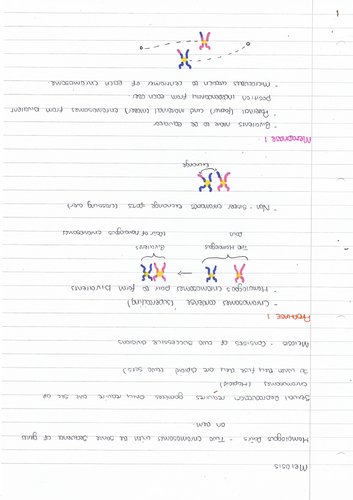 Meiosis
Homologous Pairs - Two chromosomes with the same sequence of genes
on them
Sexual Reproduction requires gametes. Only require one set of
chromosomes (Haploid)
So when they fuse they are diploid (two sets)
Meiosis - Consists of two successive divisions
Prophase 1
- Chromosomes condense (supercoiling)
- Homologous chromosomes pair to form bivalents
Two Homologous
Pairs
Bivalents
Pairs of homologous chromosomes
- Non-sister chromatids exchange parts (crossing over)
Exchange
Metaphase 1
- Bivalents move to the equator
- Paternal and maternal chromosomes from bivalent
position independently from each other
- Microtubules attach to centromere of each chromosome
1